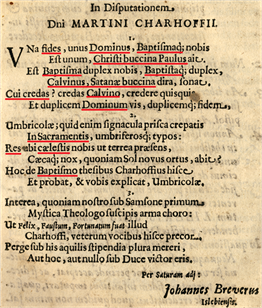 In Disputationem
Dni MARTINI CHARHOFFII.
1.
UNa fides, unus Dominus, Baptismaq; nobis
Est unum, Christi buccina Paulus ait.
Est Baptisma duplex nobis, Baptistaq; duplex,
Calvinus, Satanæ buccina dira, sonat.
Cui credas? credas Calvino, credere quisquis
Et duplicem Dominum vis, duplicemq; fidem.
2.
Umbricolæ; quid enim signacula prisca crepatis
In Sacramentis, umbriferosq; typos:
Res ubi cælestis nobis ut terrea præsens,
Cæcaq; nox, quoniam Sol novus ortus, abit?
Hoc de Baptismo thesibus Charhoffius hisce
Et probat, & vobis explicat, Umbricolæ.
3.
Interea, quoniam nostro sub Samsone primum
Mystica Theologo suscipis arma choro:
Ut Felix, Faustum, Fortunatum fuat illud
Charhoffi, veterum vocibus hisce precor.
Perge sub his aquilis stipendia plura mereri,
Aut hoc, aut nullo sub Duce victor eris.
Per Saturam adj:
Johannes Breverus
Islebiensis.